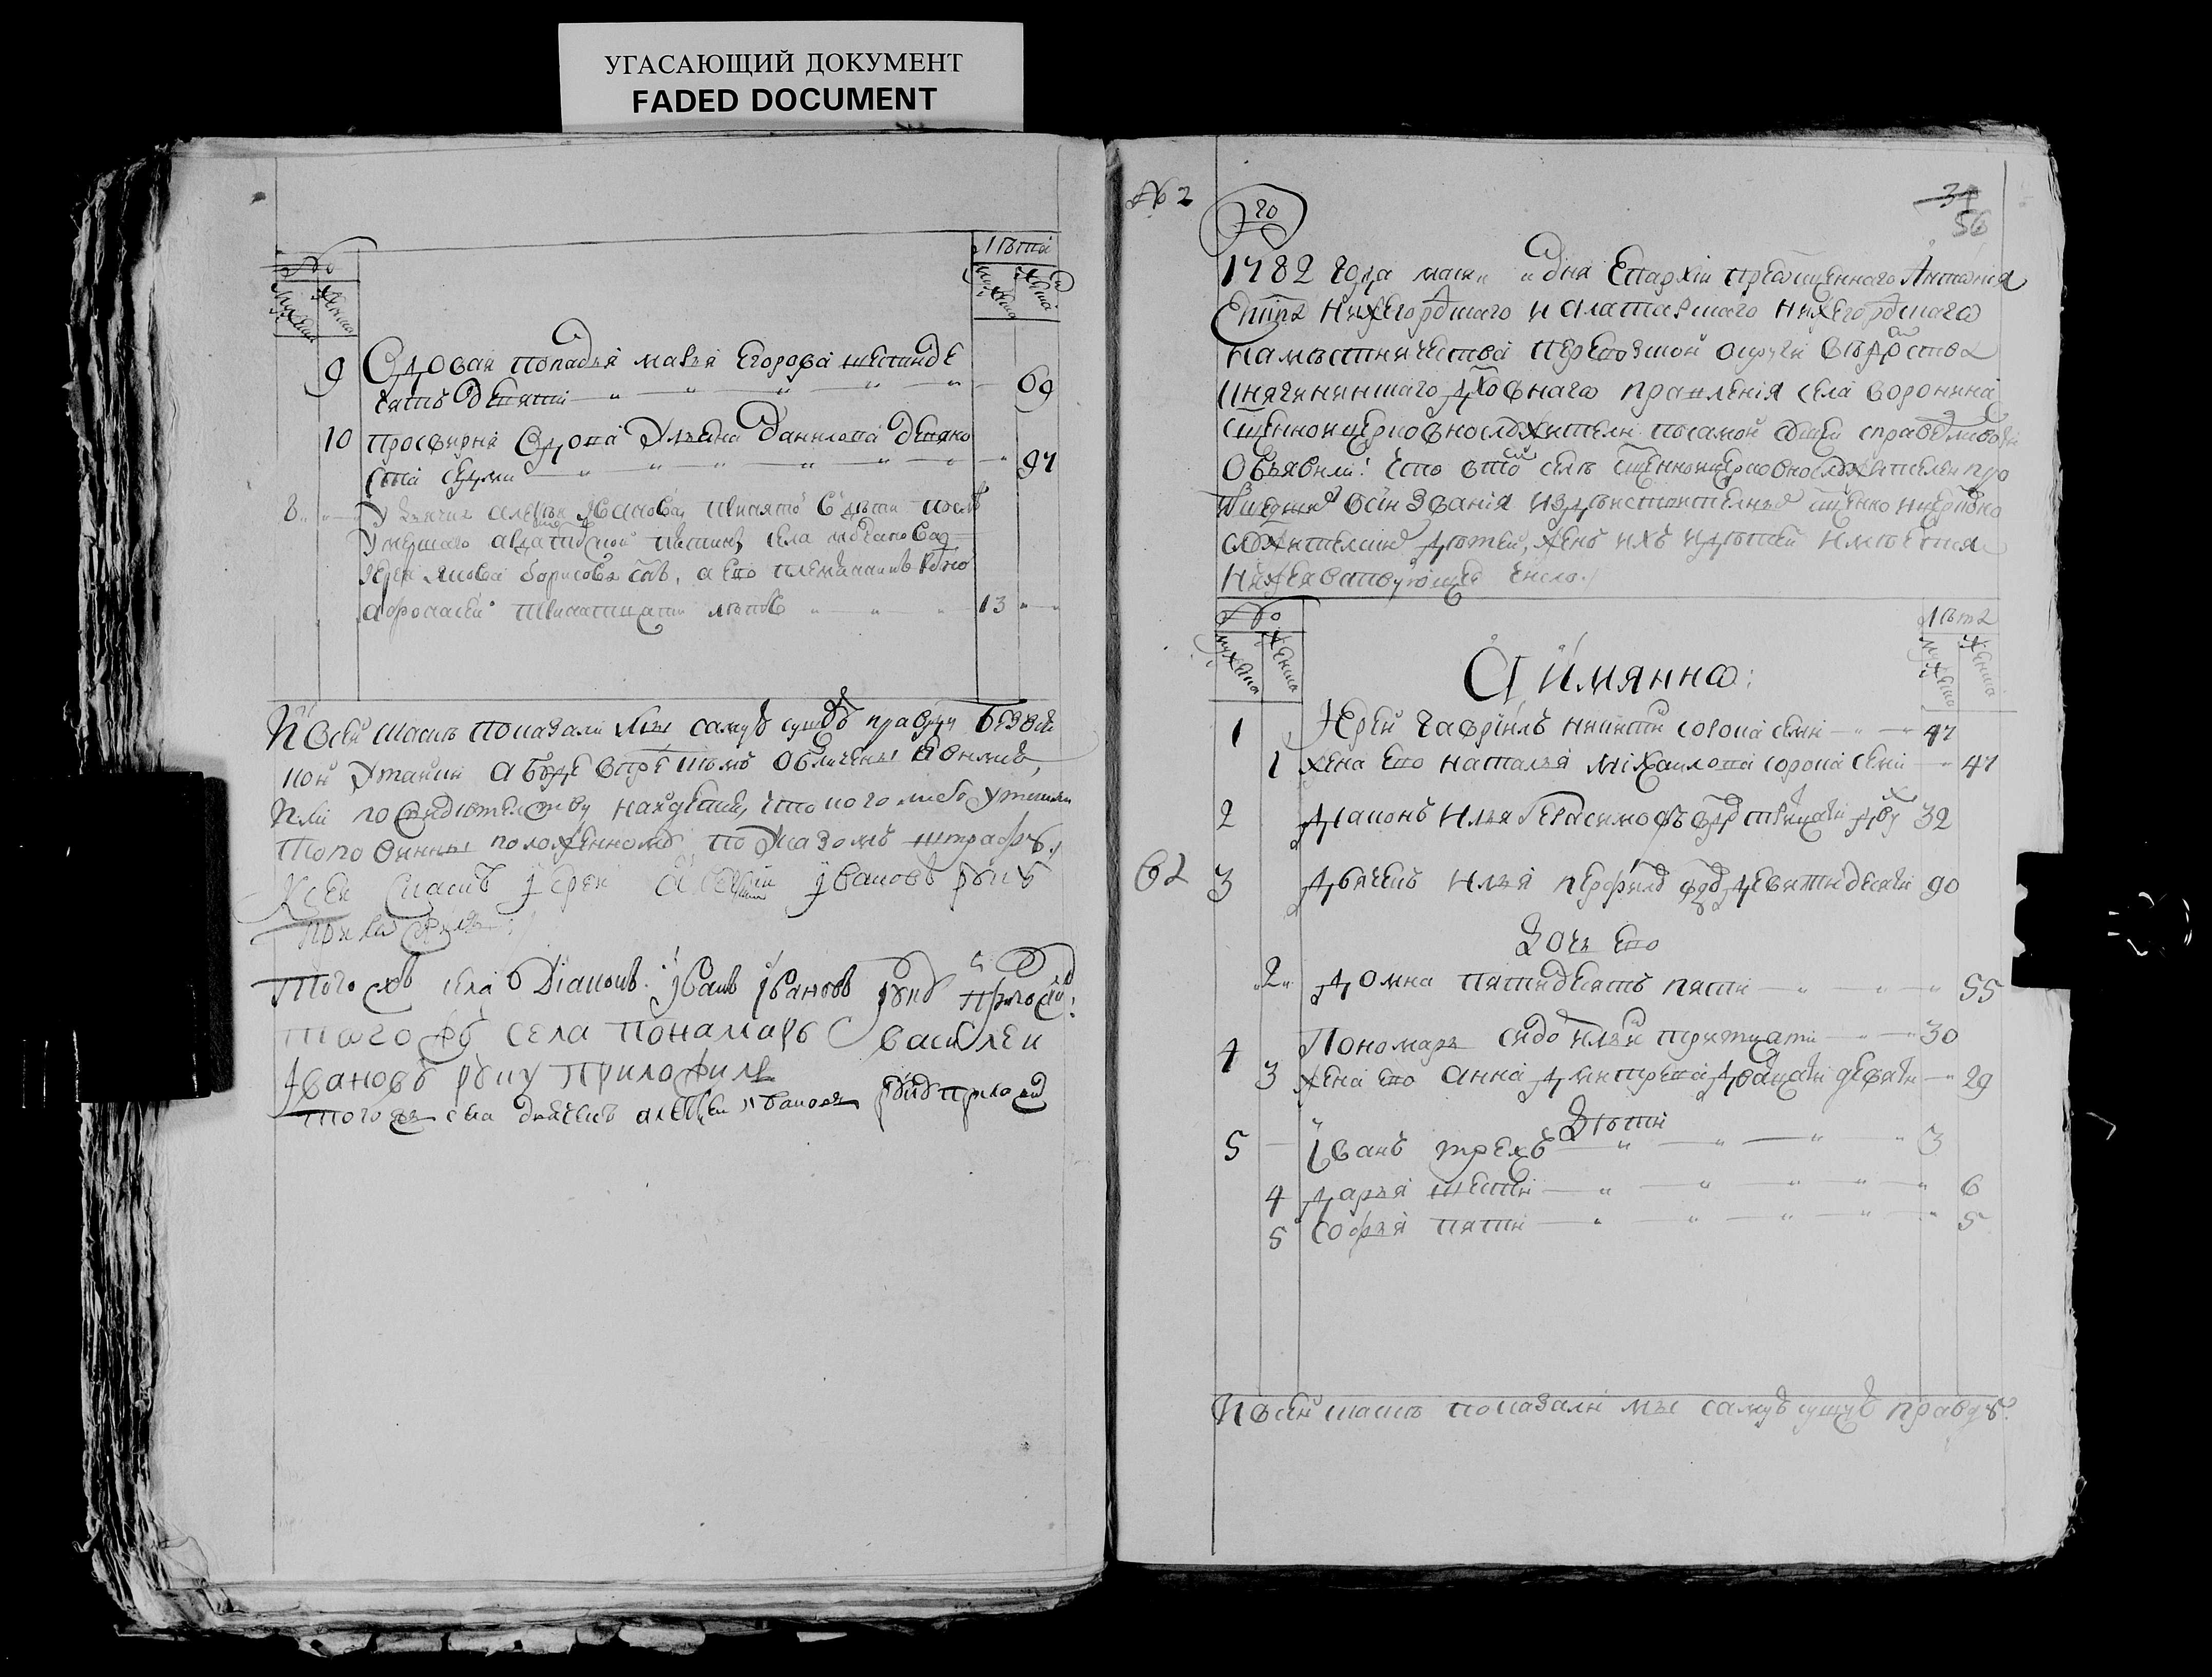 УГАСАЮЩИЙ ДОКУМЕНТ
FADED DOCUMENT
№
мужеска
женска
лѣта
мужеска
женска
9 Вдовая попадья марья Егорова шестиде
сять девяти 69
10 просвирня вдова Ульяна Данилова девяно
ста семи 97
8 У дьячка алексѣя Иванова принято в дети послѣ
умершаго села
Иерея Якова Борисова снъ, а его племянникъ родной
афонасей тринатцати лѣтъ 13
И всей скаскѣ показали мы самую сущую правду безвся
кой утайки а буде впредь кемъ обличены в чемъ
или по свидѣтелству найдетца, что кого либо утаили
то повинны положенному по указомъ штрафу
К сей скаскѣ Иерей алексѣй Ивановъ руку
приложилъ
того жъ села Діаконъ Иванъ Ивановъ руку приложилъ
того жъ села понамарь василеи
Ивановъ руку приложилъ
того жъ села дьячекъ алексеи Ивановъ руку приложилъ
№ 2
20
34
56
1782 года маия дня Епархіи преосщеннаго Антонія
Епкпа Нижегородскаго и алатарскаго нижегородскаго
намѣстничества перевозской округи вѣдомства
Княгининскаго дховнаго правленія села воронина
сщенно и церковнослужители по самой сущей справедливости
объявили: что в томъ селѣ сщенноицерковнослужителеи про
звания издѣиствителные сщенно ицерковно
служителии дѣтей, женъ ихъ идѣтей имѣетца
нижеявствующее число
№
мужеска
женска
лѣта
мужеска
женска
А имянно:
1 Иерей гавріилъ никитинъ сорока семи 47
1 жена ево наталья міхаилова сорока семи 47
2 діаконъ илья Герасимовъ вдовъ тритцати двухъ 32
62 3 дьячекъ илья перфильевъ вдовъ девяностидесяти 90
Дочь ево
2 домна пятидесятъ пяти 55
4 Пономарь сидоръ ильинъ тритцати 30
3 жена ево анна дмитрева дватцати девяти 29
Дѣти
5 Иванъ трехъ 3
4 дарья шести 6
5 софья пяти 5
И всей скаскѣ показали мы самую сущую правду